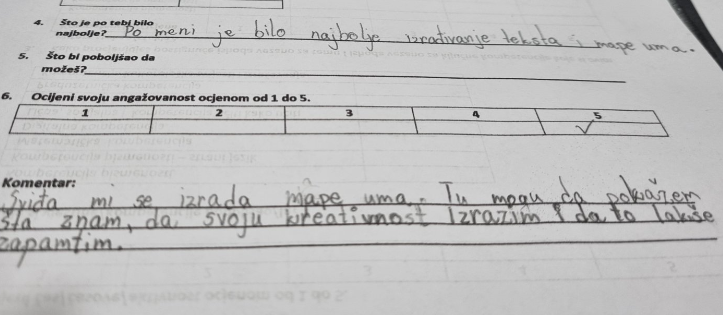 4. Što je po tebi bilo
najbolje? Po meni je bilo najbolje izrađivanje teksta i mape uma.
5. Što bi poboljšao da
možeš?
6. Ocijeni svoju angažovanost ocjenom od 1 do 5.
1 2 3 4 5
✓
Komentar:
Sviđa mi se izrada mape uma. Tu mogu da pokažem
šta znam, da svoju kreativnost izrazim i da to lakše
zapamtim.